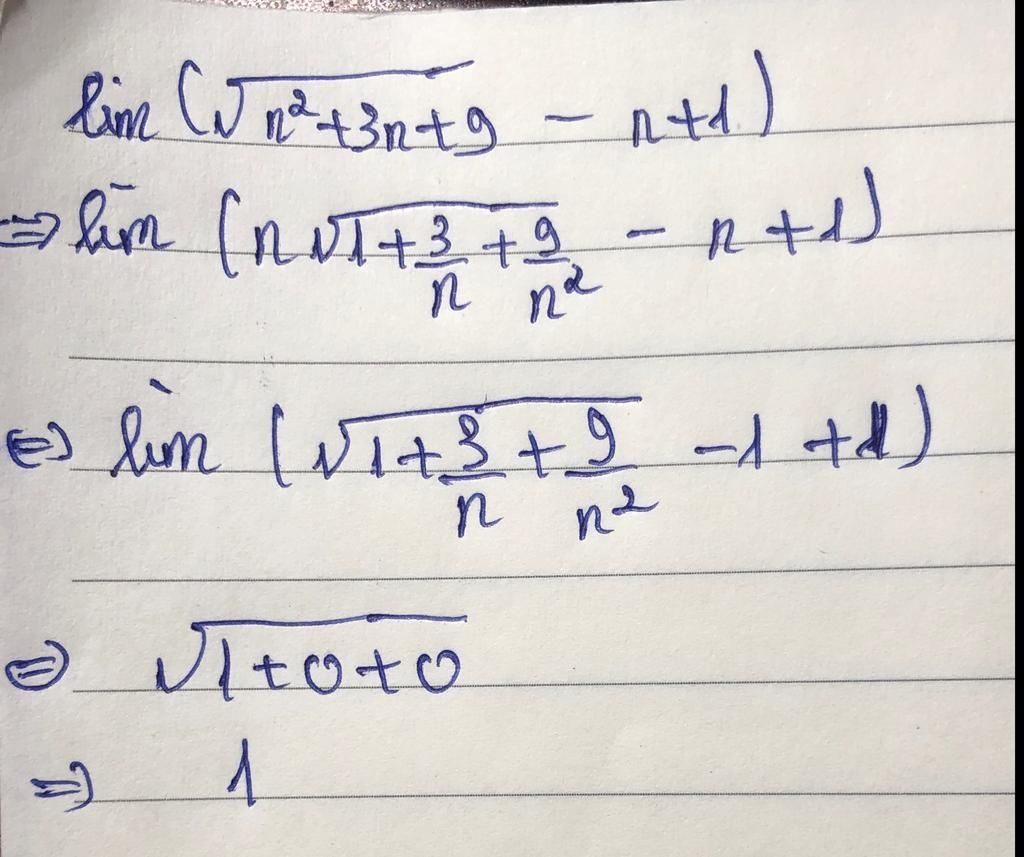 lim (√(n²+3n+9) - n+1)
⇒ lim (n√(1+3/n+9/n²) - n+1)
⇔ lim (√(1+3/n+9/n²) -1+1)
⇔ √(1+0+0)
⇒ 1